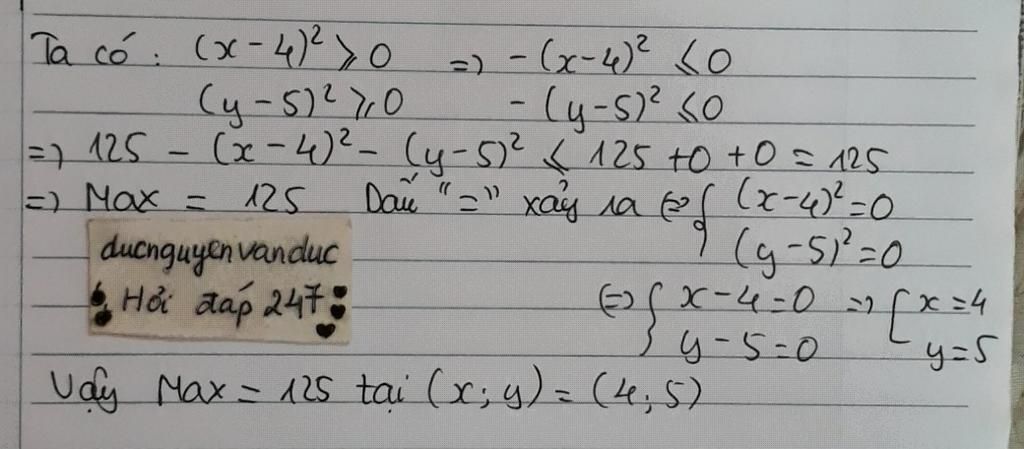 Ta có : (x-4)² ⩾ 0 => -(x-4)² ⩽ 0
(y-5)² ⩾ 0 -(y-5)² ⩽ 0
=> 125 - (x-4)² - (y-5)² ⩽ 125 + 0 + 0 = 125
=> Max = 125 Dấu "=" xảy ra <=> { (x-4)² = 0
(y-5)² = 0
ducnguyenvanduc
Hỏi đáp 247
<=> { x-4=0 => [ x=4
y-5=0 y=5
Vậy Max = 125 tại (x; y) = (4; 5)